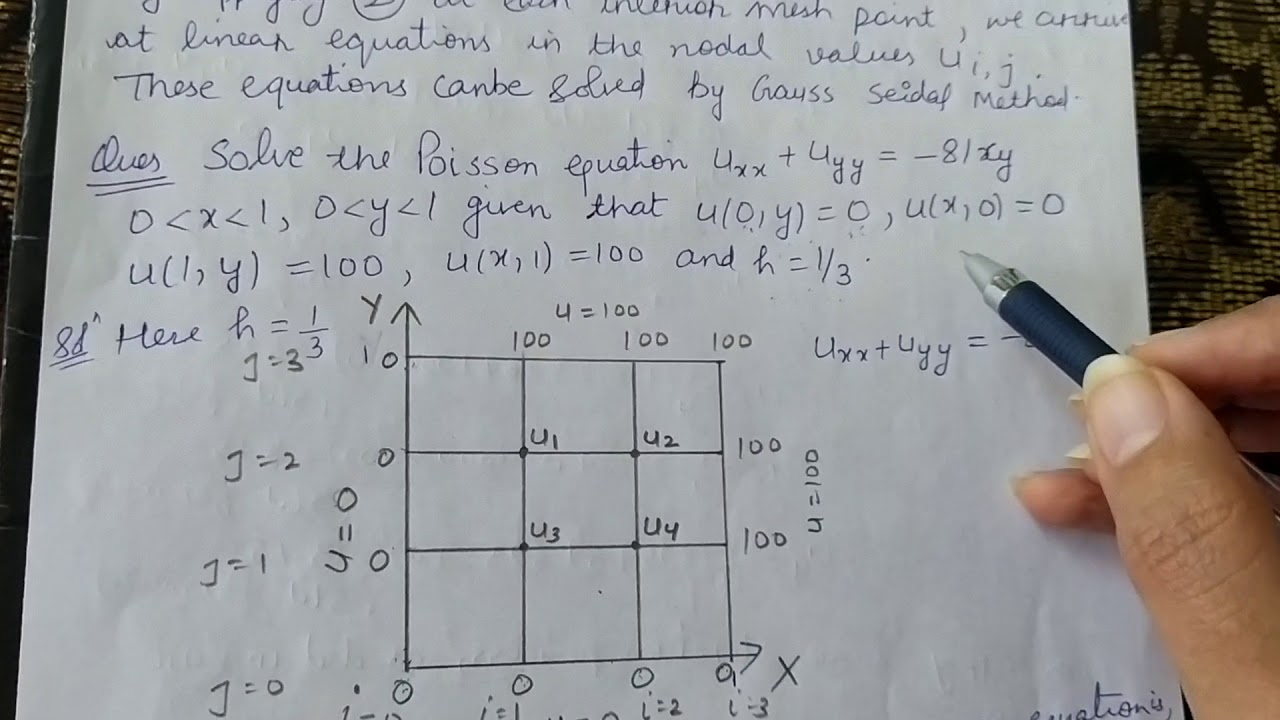 at each interior mesh point, we arrive
at linear equations in the nodal values u i,j.
These equations canbe solved by Gauss Seidal Method.
Ques Solve the Poisson equation uxx + uyy = -81xy
0<x<1, 0<y<1 given that u(0,y)=0, u(x,0)=0
u(1,y) =100, u(x,1)=100 and h=1/3.
Solⁿ Here h = 1/3
Y
u=100
100 100 100
J=3 1 0
uxx+uyy = -
u1 u2 100
J=2 0
u=0
u=100
u3 u4 100
J=1 0
X
J=0 0 0 0 0
i=1 i=2 i=3
equation is,